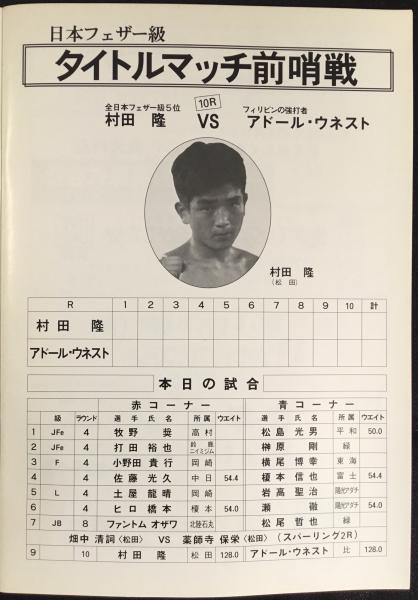 日本フェザー級
タイトルマッチ前哨戦
全日本フェザー級5位 10R フィリピンの強打者
村田 隆 VS アドール・ウネスト
村田 隆
(松田)
R 1 2 3 4 5 6 7 8 9 10 計
村田 隆
アドール・ウネスト
本日の試合
赤コーナー 青コーナー
級 ラウンド 選手氏名 所属 ウエイト 選手氏名 所属 ウエイト
1 JFe 4 牧野 奨 高村 松島光男 平和 50.0
2 JFe 4 打田裕也 鈴鹿ニイミジム 榊原 剛 緑
3 F 4 小野田貴行 岡崎 横尾博幸 東海
4 4 佐藤光久 中日 54.4 榎本信也 富士 54.4
5 L 4 土屋龍晴 岡崎 岩高聖治 陽光アダチ
6 4 ヒロ橋本 榎本 54.0 瀬 徹 陽光アダチ 54.0
7 JB 8 ファントム オザワ 北陸石丸 松尾哲也 緑
畑中清詞〈松田〉 VS 薬師寺保栄〈松田〉 (スパーリング2R)
9 10 村田 隆 松田 128.0 アドール・ウネスト 比 128.0